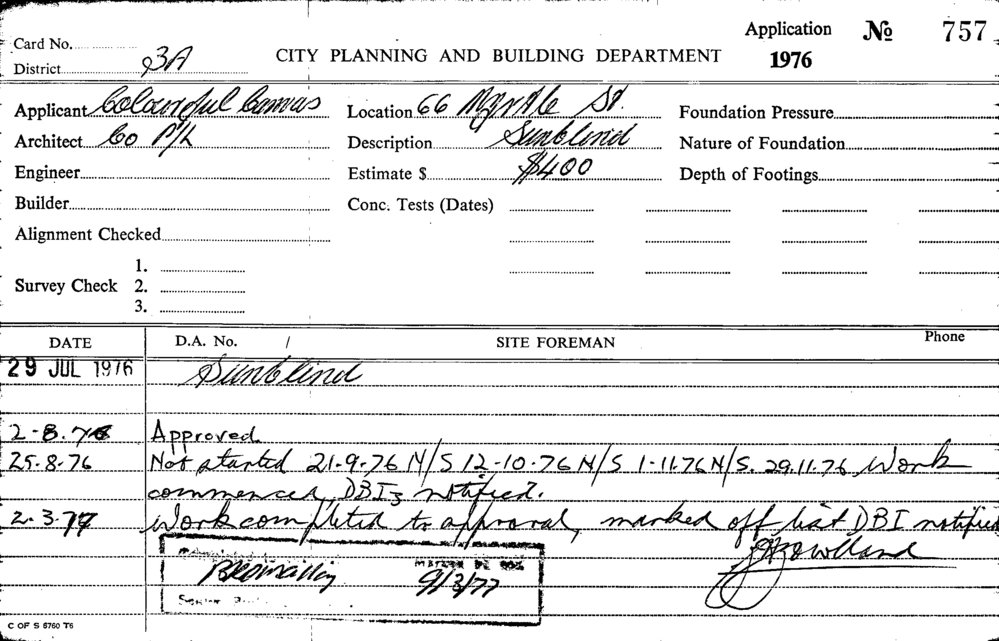 Application No 757
Card No.
District 3A
CITY PLANNING AND BUILDING DEPARTMENT
1976
Applicant Colourful Canvas Location 66 Myrtle St. Foundation Pressure
Architect Co P/L Description Sunblind Nature of Foundation
Engineer Estimate $ $400 Depth of Footings
Builder Conc. Tests (Dates)
Alignment Checked
1.
Survey Check 2.
3.
DATE D.A. No. / SITE FOREMAN Phone
29 JUL 1976 Sunblind
2-8.76 Approved
25-8-76 Not started 21-9-76 N/S 12-10-76 N/S 1-11.76 N/S. 29.11.76 Work
commenced, DBI3 notified.
2.3.77 Work completed to approval, marked off list DBI notified
9/3/77
C OF S 5760 T6